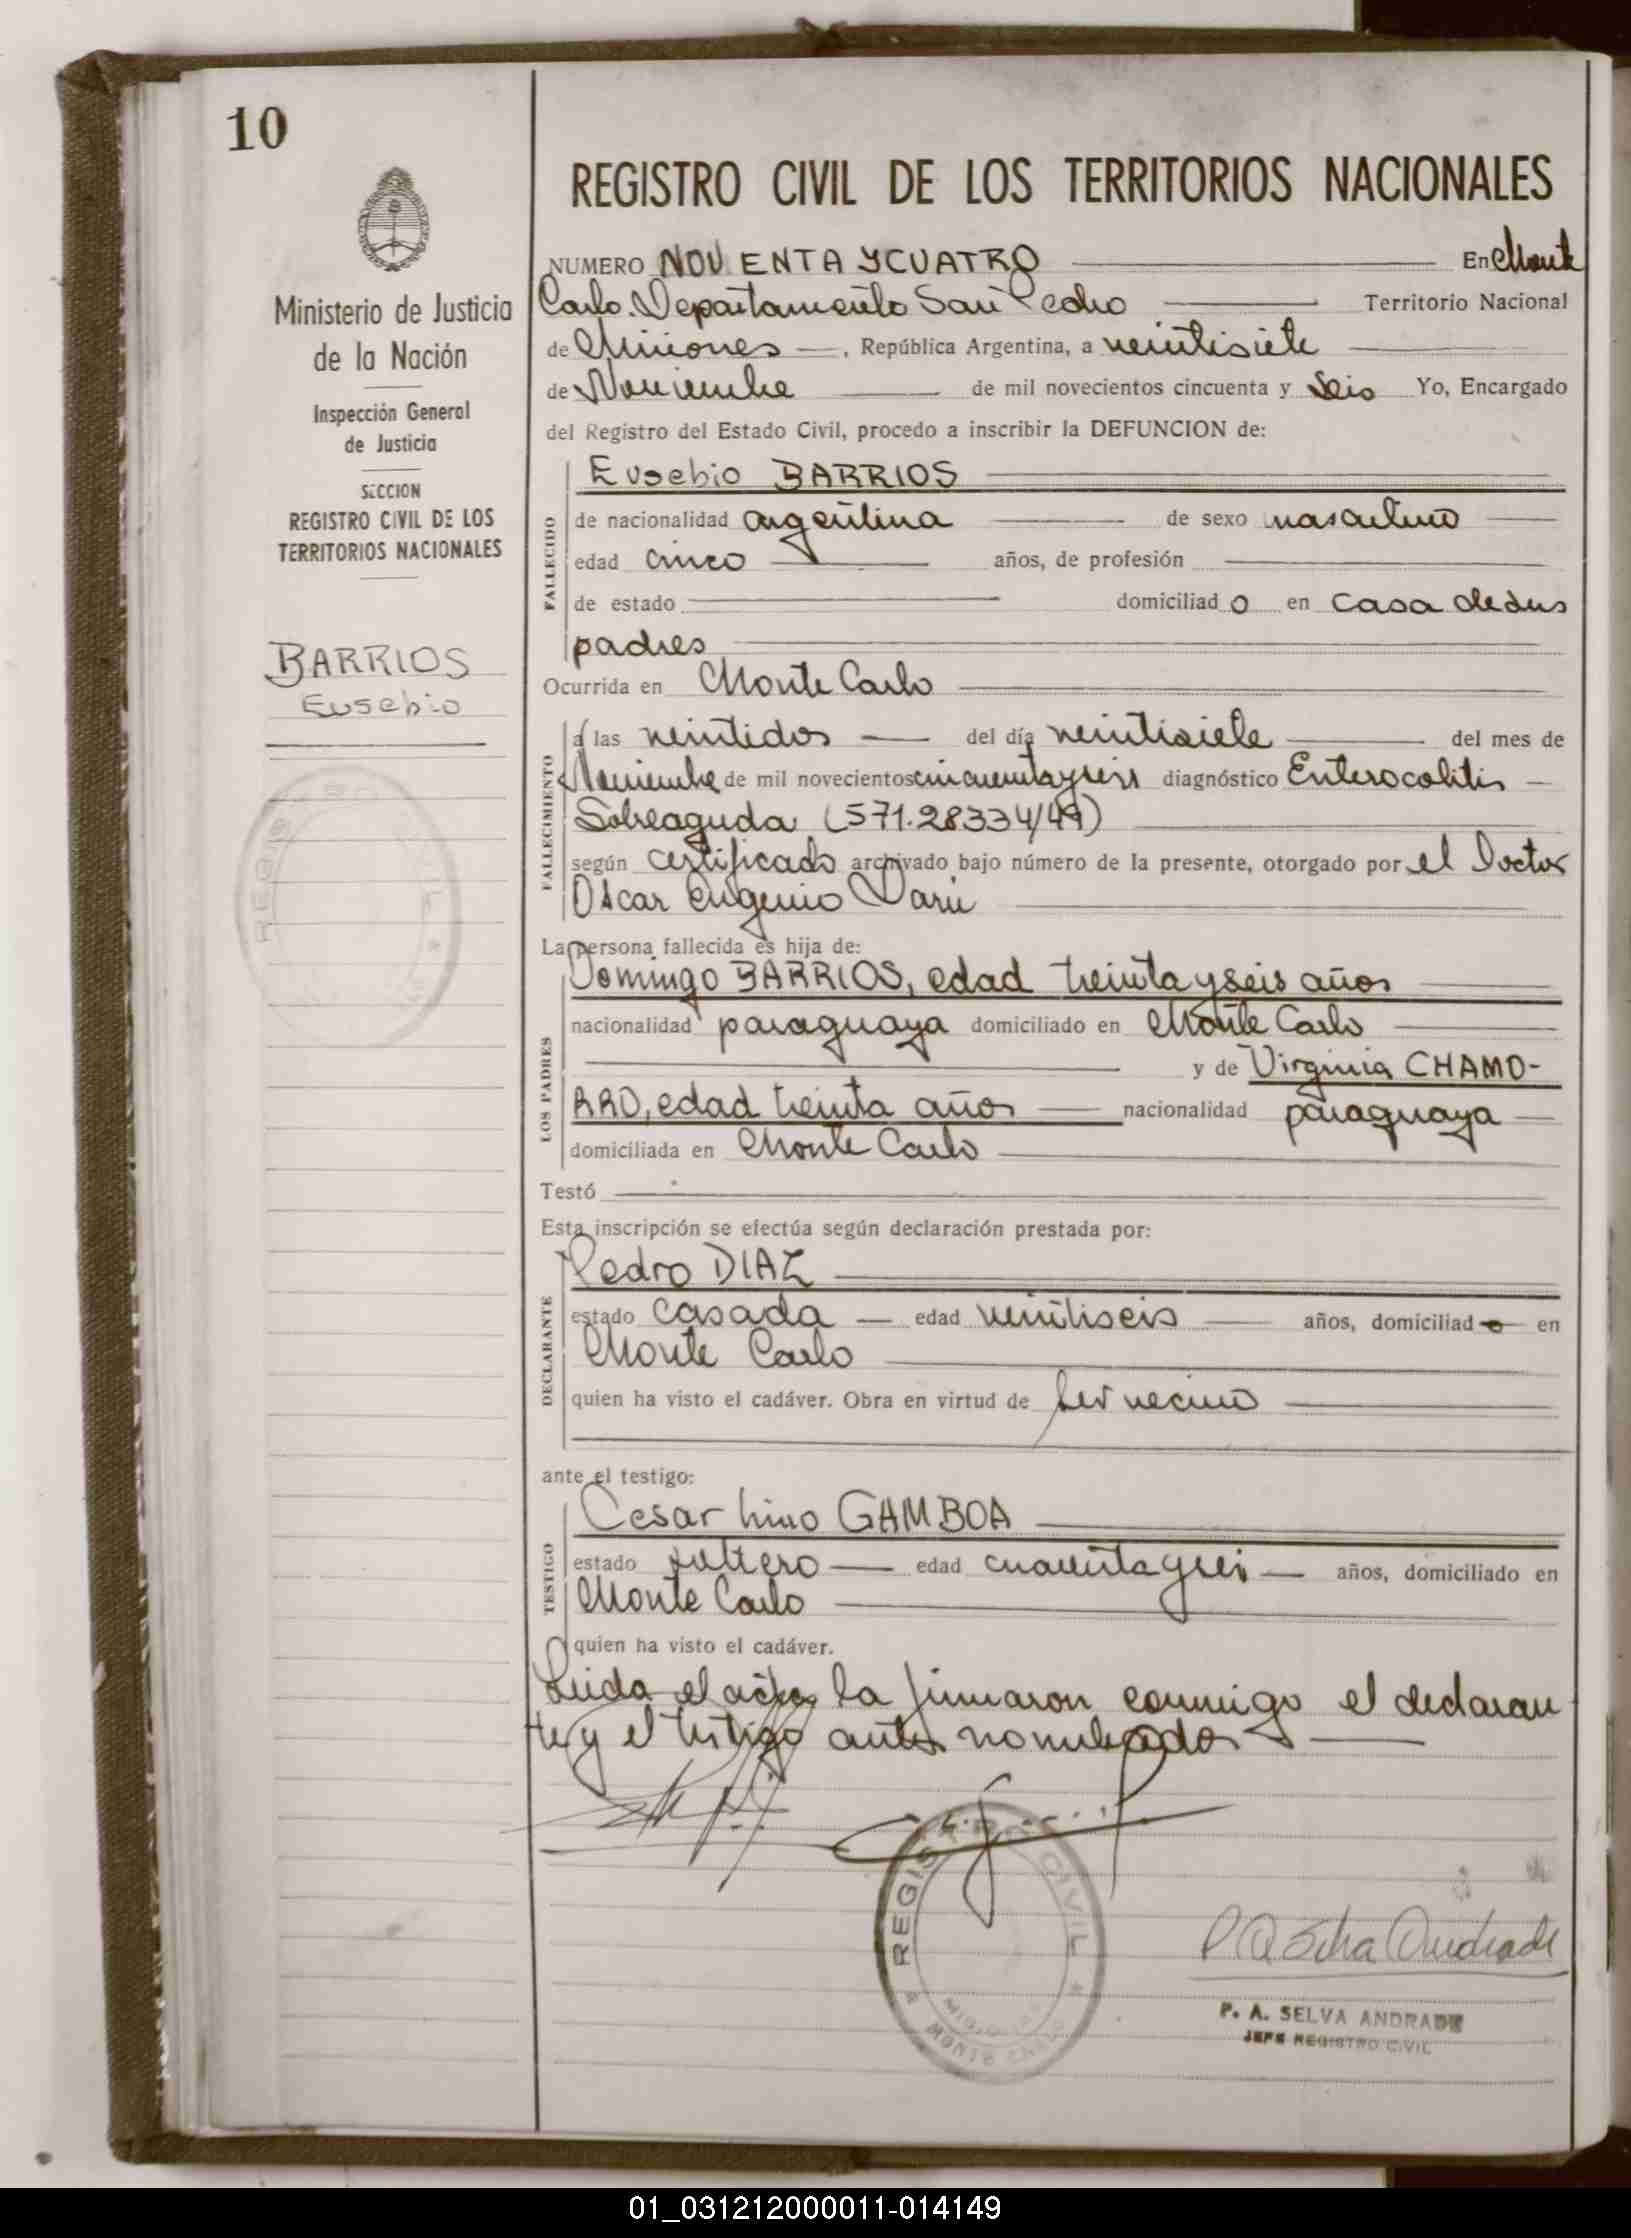 10
Ministerio de Justicia
de la Nación
Inspección General
de Justicia
SECCION
REGISTRO CIVIL DE LOS
TERRITORIOS NACIONALES
BARRIOS
Eusebio
REGISTRO CIVIL DE LOS TERRITORIOS NACIONALES
NUMERO NOVENTA Y CUATRO En Monte
Carlo. Departamento San Pedro Territorio Nacional
de Misiones, República Argentina, a veintisiete
de Noviembre de mil novecientos cincuenta y seis Yo, Encargado
del Registro del Estado Civil, procedo a inscribir la DEFUNCION de:
FALLECIDO
Eusebio BARRIOS
de nacionalidad argentina de sexo masculino
edad cinco años, de profesión
de estado domiciliado en casa de sus
padres
Ocurrida en Monte Carlo
FALLECIMIENTO
a las veintidos del día veintisiete del mes de
Noviembre de mil novecientos cincuenta y seis diagnóstico Enterocolitis
Sobreaguda (571.28334/49)
según certificado archivado bajo número de la presente, otorgado por el Doctor
Oscar Eugenio Darú
La persona fallecida es hija de:
LOS PADRES
Domingo BARRIOS, edad treinta y seis años
nacionalidad paraguaya domiciliado en Monte Carlo
y de Virginia CHAMO-
RRO, edad treinta años nacionalidad paraguaya
domiciliada en Monte Carlo
Testó
Esta inscripción se efectúa según declaración prestada por:
DECLARANTE
Pedro DIAZ
estado casada edad veintiseis años, domiciliado en
Monte Carlo
quien ha visto el cadáver. Obra en virtud de ser vecino
ante el testigo:
TESTIGO
Cesar Lino GAMBOA
estado soltero edad cuarenta y seis años, domiciliado en
Monte Carlo
quien ha visto el cadáver.
Leida el acta la firmaron conmigo el declaran
te y el testigo antes nombrados
REGISTRO CIVIL
MONTE CARLO
P A Selva Andrade
P. A. SELVA ANDRADE
JEFE REGISTRO CIVIL
01_031212000011-014149